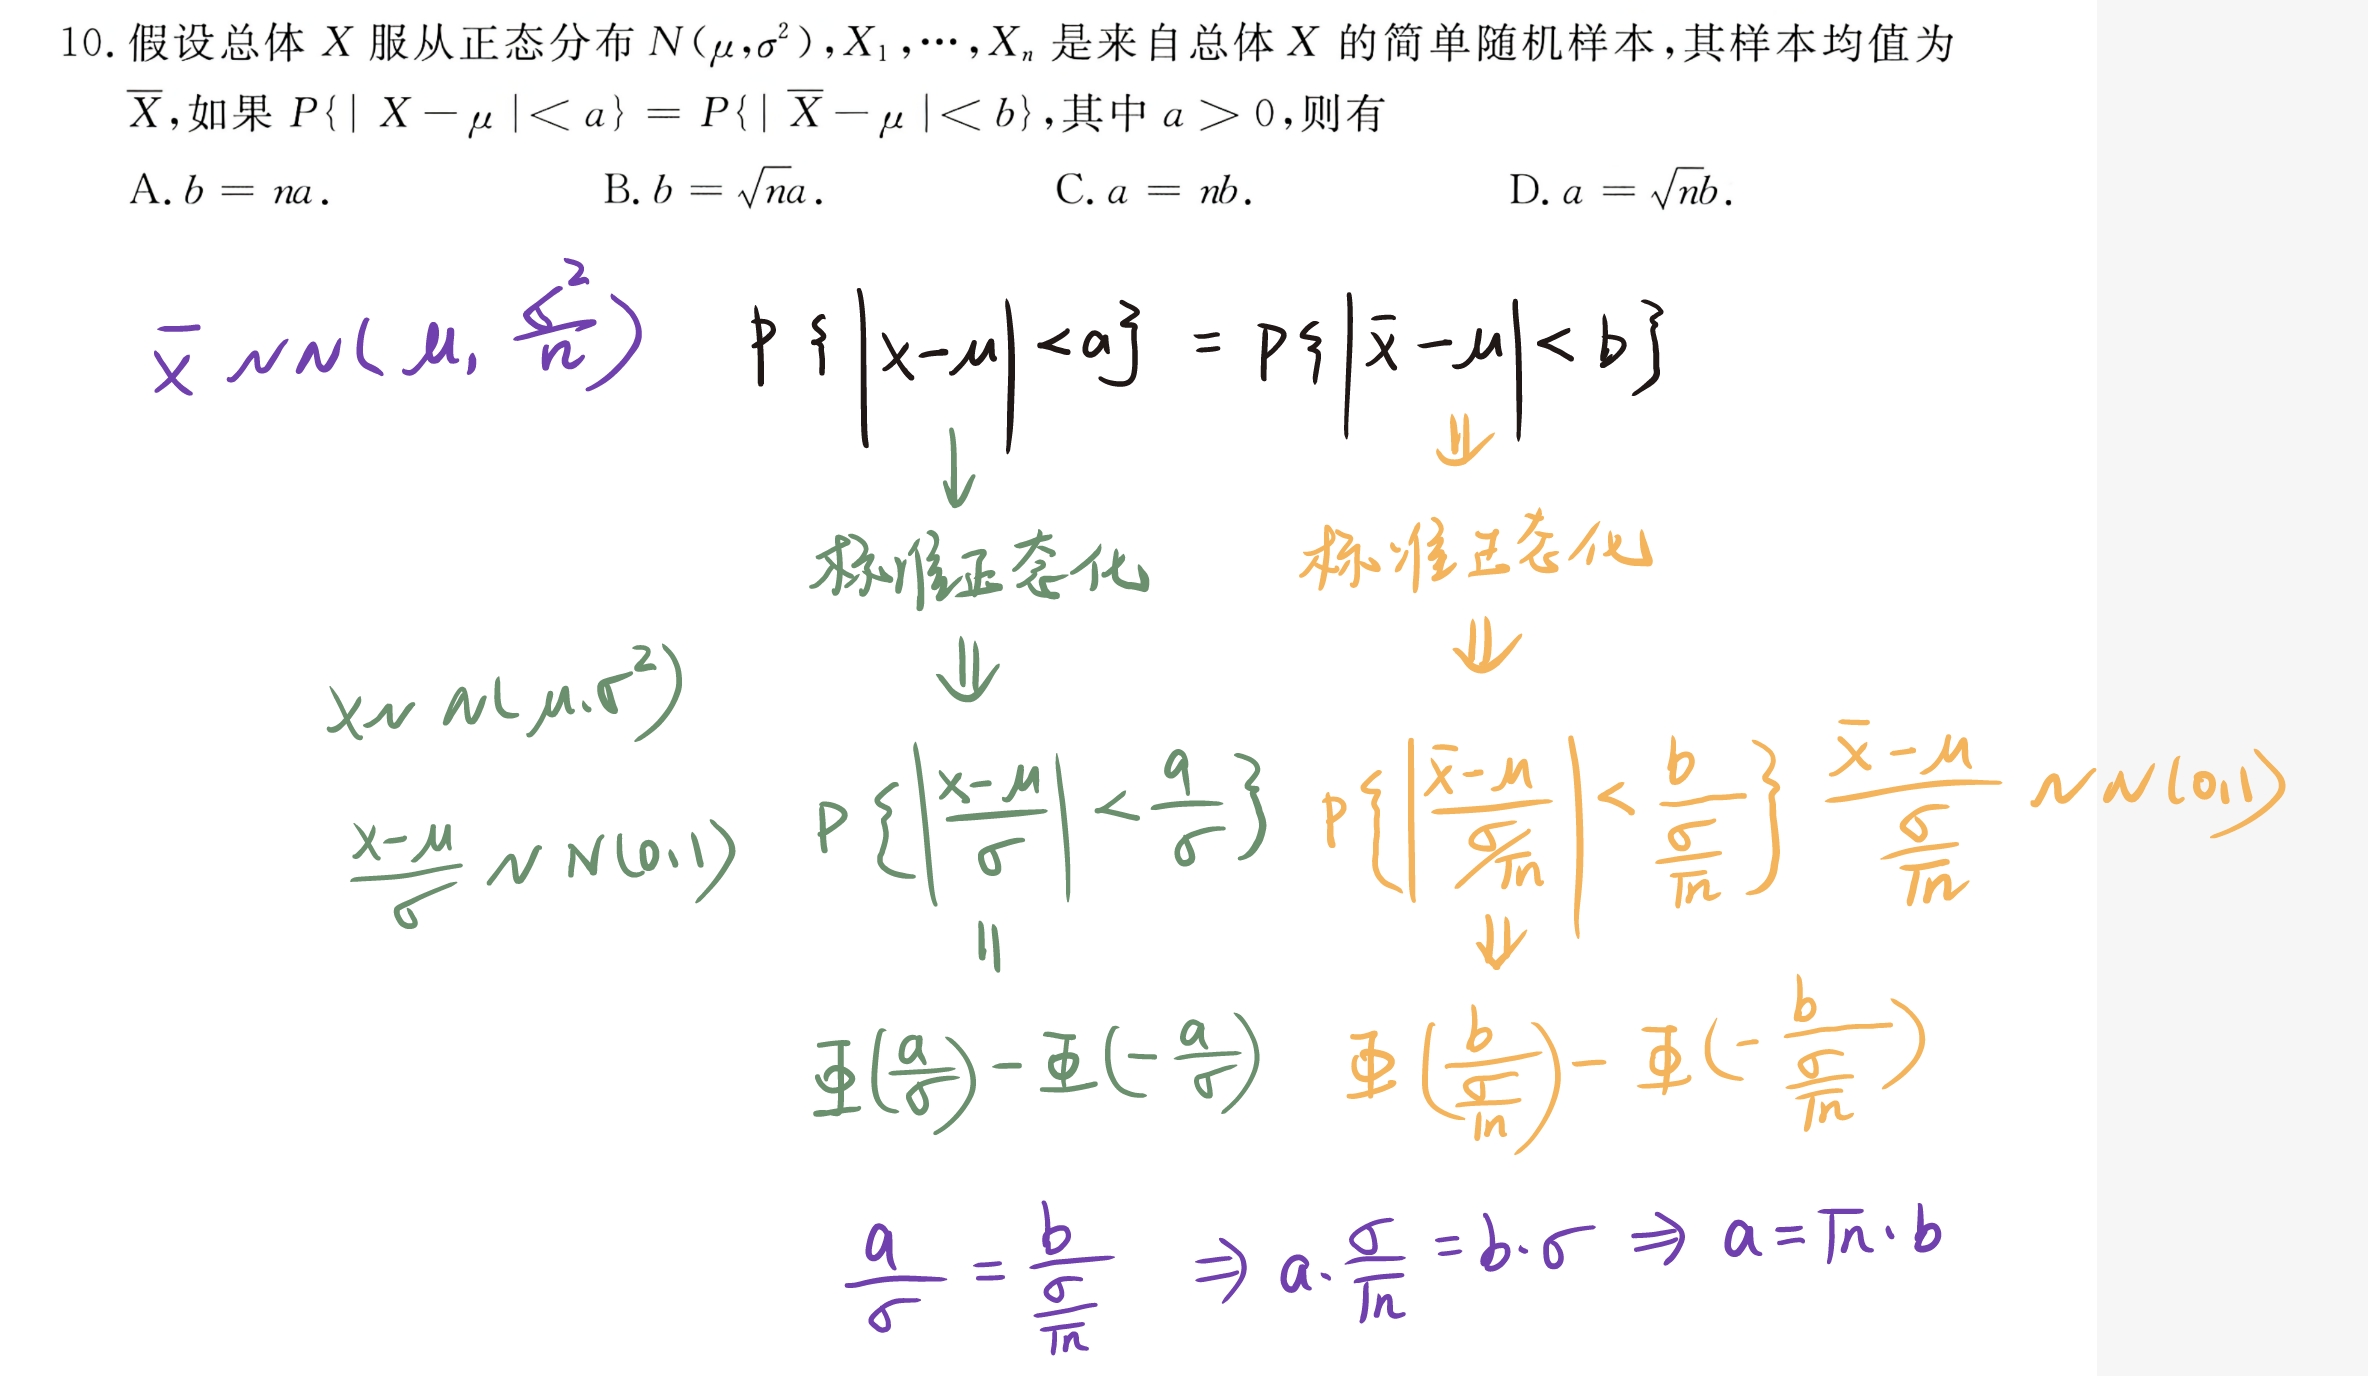 10. 假设总体 X 服从正态分布 N(μ,σ²),X₁,⋯,Xₙ 是来自总体 X 的简单随机样本,其样本均值为
X̄,如果 P{| X − μ |< a} = P{| X̄ − μ |< b},其中 a > 0,则有
A. b = na. B. b = √na. C. a = nb. D. a = √nb.
x̄ ~ N(μ, σ²/n) P{|x−μ|<a} = P{|x̄−μ|<b}
↓ ⇓
标准正态化 标准正态化
⇓ ⇓
x ~ N(μ,σ²)
(x−μ)/σ ~ N(0,1) P{|(x−μ)/σ| < a/σ} P{|(x̄−μ)/(σ/√n)| < b/(σ/√n)} (x̄−μ)/(σ/√n) ~ N(0,1)
= ⇓
Φ(a/σ) − Φ(−a/σ) Φ(b/(σ/√n)) − Φ(−b/(σ/√n))
a/σ = b/(σ/√n) ⇒ a·σ/√n = b·σ ⇒ a = √n·b